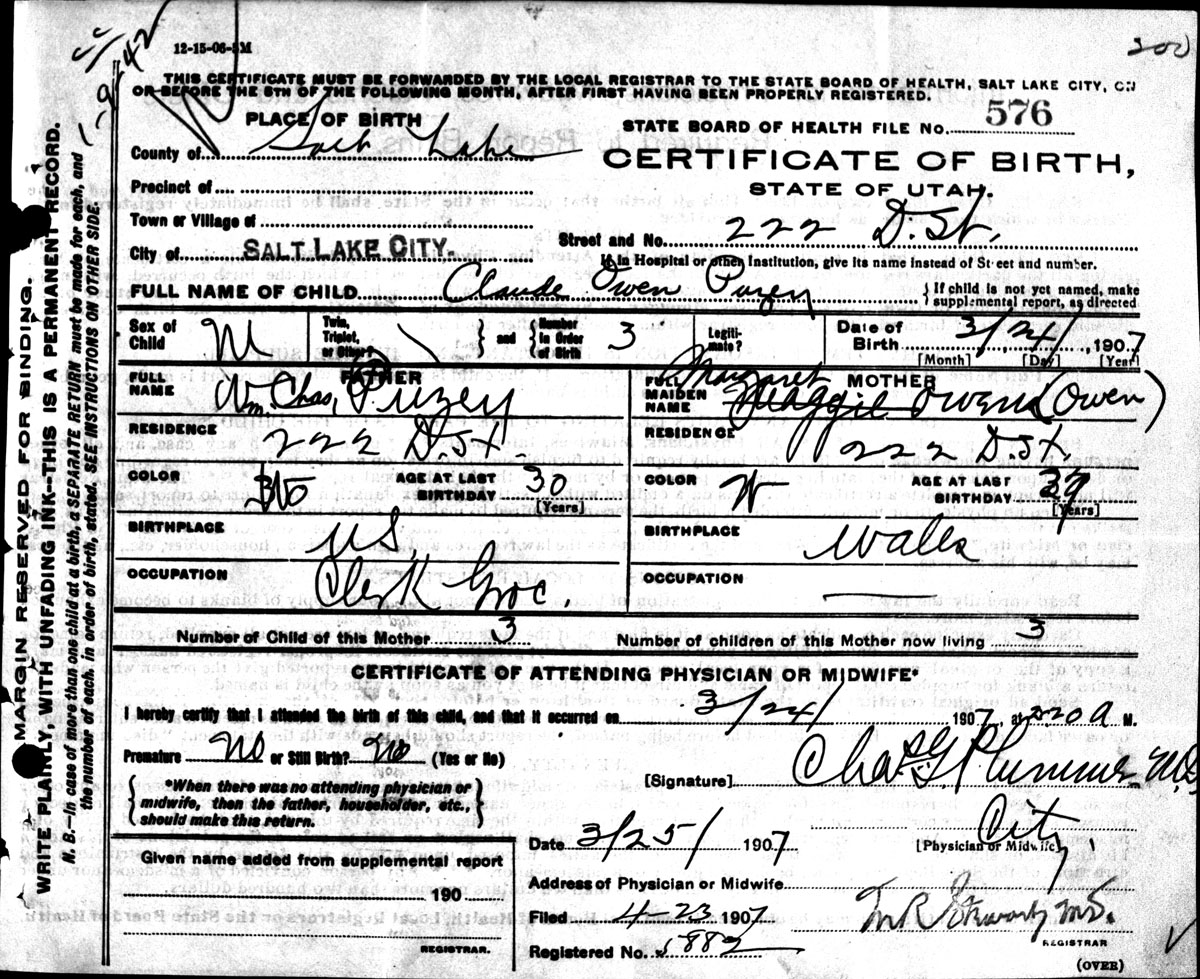 200
42
12-15-06-5M
THIS CERTIFICATE MUST BE FORWARDED BY THE LOCAL REGISTRAR TO THE STATE BOARD OF HEALTH, SALT LAKE CITY, ON
OR BEFORE THE 5TH OF THE FOLLOWING MONTH, AFTER FIRST HAVING BEEN PROPERLY REGISTERED.
PLACE OF BIRTH
STATE BOARD OF HEALTH FILE NO. 576
County of Salt Lake
CERTIFICATE OF BIRTH,
STATE OF UTAH.
Precinct of
Town or Village of
Street and No. 222 D. St.
City of SALT LAKE CITY.
If in Hospital or other Institution, give its name instead of Street and number.
FULL NAME OF CHILD Claude Owen Puzey
If child is not yet named, make supplemental report, as directed
Sex of Child M
Twin, Triplet, or Other?
and Number in Order of Birth 3
Legitimate?
Date of Birth 3/24/, 1907
[Month] [Day] [Year]
FATHER
FULL NAME Wm. Chas. Puzey
MOTHER
FULL MAIDEN NAME Margaret Maggie Owens (Owen)
RESIDENCE 222 D. St.
RESIDENCE 222 D. St.
COLOR W
AGE AT LAST BIRTHDAY 30
[Years]
COLOR W
AGE AT LAST BIRTHDAY 39
[Years]
BIRTHPLACE U S,
BIRTHPLACE Wales
OCCUPATION Clerk Groc.
OCCUPATION
Number of Child of this Mother 3
Number of children of this Mother now living 3
CERTIFICATE OF ATTENDING PHYSICIAN OR MIDWIFE*
I hereby certify that I attended the birth of this child, and that it occurred on 3/24/ 1907, at 220 A M.
Premature No or Still Birth? No (Yes or No)
[Signature] Chas G Plummer M.D.
*When there was no attending physician or
midwife, then the father, householder, etc.,
should make this return.
Date 3/25/ 1907
City
[Physician or Midwife]
Given name added from supplemental report
190
REGISTRAR.
Address of Physician or Midwife
Filed 4-23 1907
M.D.
REGISTRAR
Registered No. 882
(OVER)
MARGIN RESERVED FOR BINDING.
WRITE PLAINLY, WITH UNFADING INK--THIS IS A PERMANENT RECORD.
N. B.--In case of more than one child at a birth, a SEPARATE RETURN must be made for each, and
the number of each, in order of birth, stated. SEE INSTRUCTIONS ON OTHER SIDE.